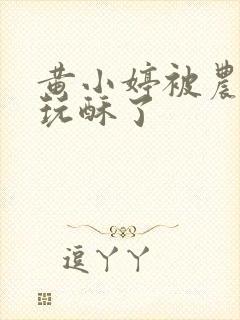 黄小婷被農
玩酥了
逗丫丫